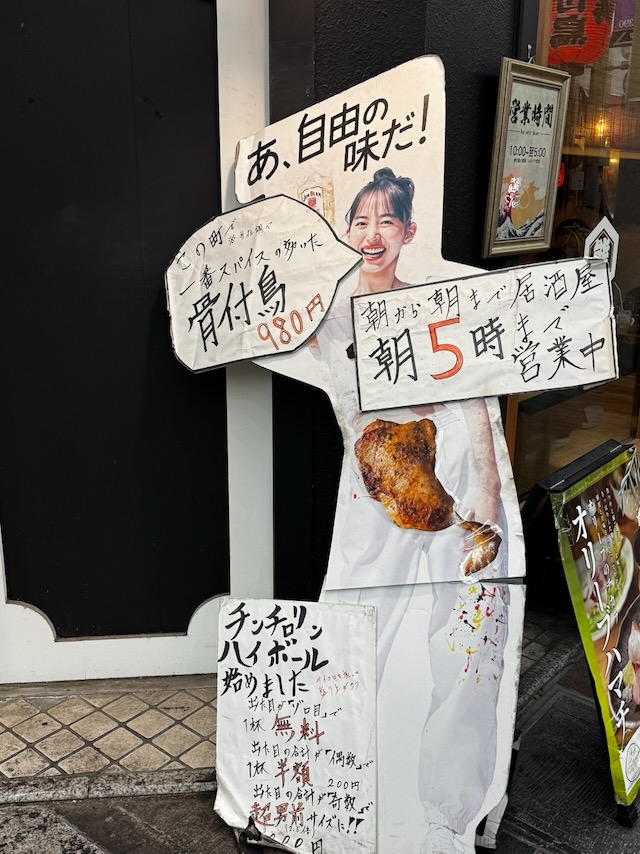 あ、自由の
味だ!
JIM BEAM
この町で
※当社調べ
一番スパイスの効いた
骨付鳥
980円
朝から朝まで居酒屋
朝5時まで
営業中
営業時間
10:00~翌5:00
チンチロリン
ハイボール
始めました
出た目が「ゾロ目」で
1杯 無料
出た目の合計が「偶数」で
1杯 半額 200円
出た目の合計が「奇数」で
超男前サイズに!!
オリーブハマチ